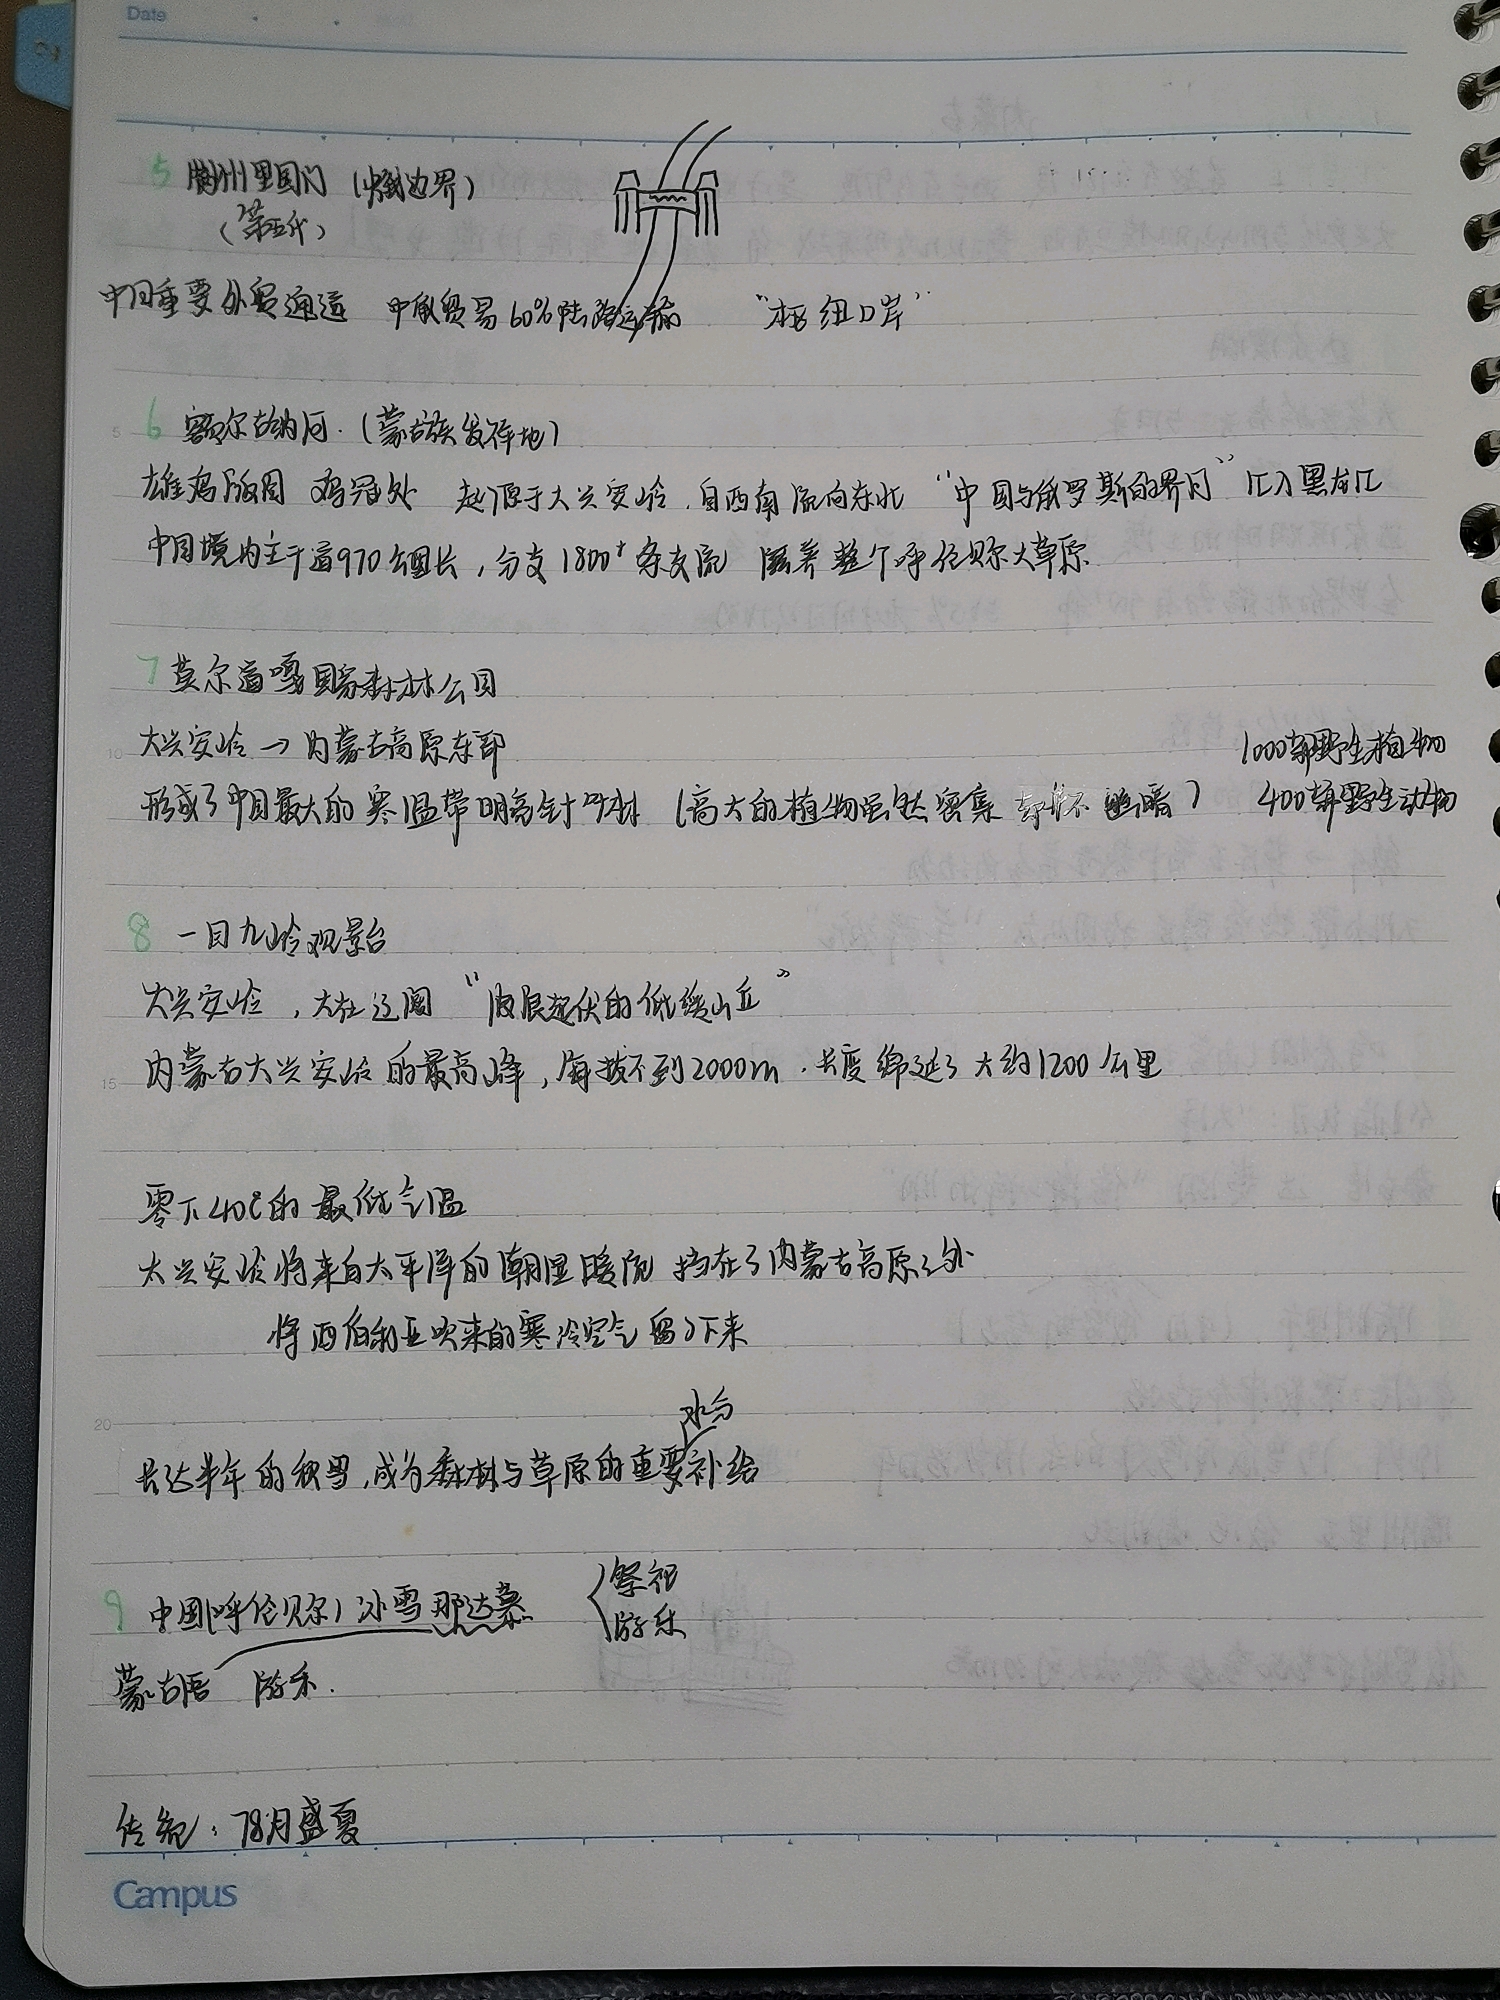 Date
5 满洲里国门 (中俄边界)
(第五代)
中国重要外贸通道 中俄贸易60%陆路运输 “枢纽口岸”
6 额尔古纳河.(蒙古族发祥地)
雄鸡版图 鸡冠处 起源于大兴安岭.自西南流向东北 “中国与俄罗斯的界河” 汇入黑龙江
5
中国境内主干道970公里长,分支1800+条支流 滋养整个呼伦贝尔大草原
7 莫尔道嘎国家森林公园
大兴安岭→内蒙古高原东部 1000余种野生植物
10
形成了中国最大的寒温带明亮针叶林 (高大的植物虽然密集 却不幽暗) 400余种野生动物
8 一目九岭观景台
大兴安岭,大壮辽阔 “波浪起伏的低缓山丘”
内蒙古大兴安岭的最高峰,海拔不到2000m.长度绵延了大约1200公里
15
零下40℃的最低气温
大兴安岭将来自太平洋的潮湿暖流 挡在了内蒙古高原之外
将西伯利亚吹来的寒冷空气留了下来
20
水分
长达半年的积雪,成为森林与草原的重要补给
9 中国(呼伦贝尔)冰雪那达慕 祭祀
游乐
蒙古语 游乐.
传统:78月盛夏
Campus